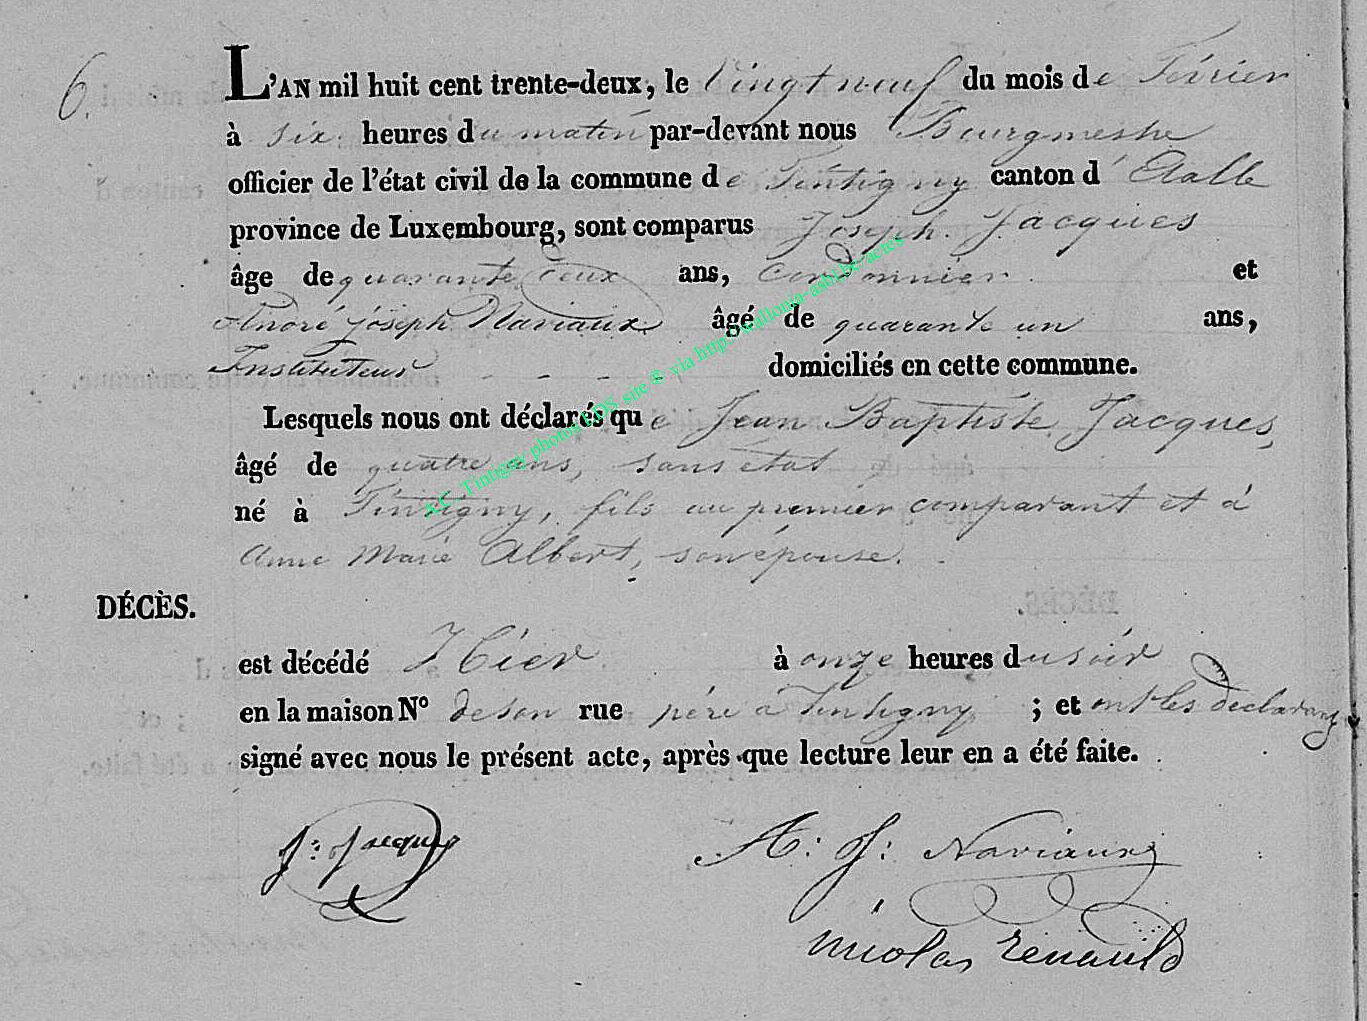 6.
L'AN mil huit cent trente-deux, le vingt neuf du mois de Février
à six heures du matin par-devant nous Bourgmestre
officier de l'état civil de la commune de Tintigny canton d'Etalle
province de Luxembourg, sont comparus Joseph Jacques
âge de quarante deux ans, Cordonnier et
André joseph Naviaux âgé de quarante un ans,
Instituteur - - - - domiciliés en cette commune.
Lesquels nous ont déclarés que Jean Baptiste Jacques,
âgé de quatre ans, sans état
né à Tintigny, fils du premier comparant et d
Anne Marie Albert, son épouse.
DÉCÈS.
est décédé Hier à onze heures du soir
en la maison N° de son rue père à Tintigny ; et ont les déclarans
signé avec nous le présent acte, après que lecture leur en a été faite.
J: Jacques
A: J: Naviaux
nicolas Renauld
Tintigny photos LDS site & via http://wallonia-asbl.be/actes